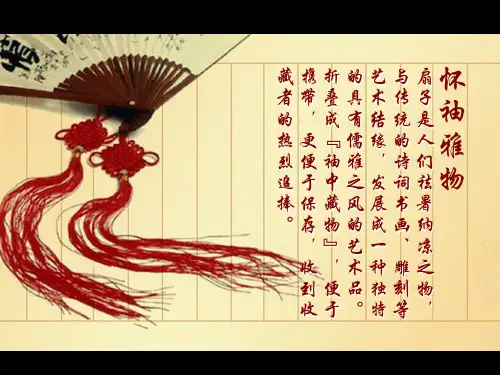 怀袖雅物
扇子是人们祛暑纳凉之物，
与传统的诗词书画、雕刻等
艺术结缘，发展成一种独特
的具有儒雅之风的艺术品。
折叠成『袖中藏物』，便于
携带，更便于保存，收到收
藏者的热烈追捧。